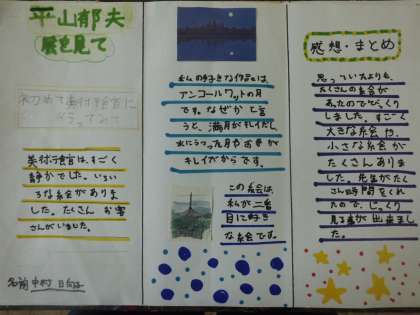 平山郁夫
展を見て
初めて美術館に
行ってみて
美術館は、すごく
静かでした。いろい
ろな絵がありま
した。たくさんお客
さんがいました。
名前 中村
私の好きな作品は、
アンコールワットの月
です。なぜかと言
うと、満月がキレイだし、
水にうつった月やお寺が
キレイだからです。
この絵は、
私が二番
目に好き
な絵です。
感想・まとめ
思っていたよりも、
たくさんの絵が
あったのでびっくり
しました。すごく
大きな絵や、
小さな絵が
たくさんありま
した。先生がたく
さん時間をくれ
たので、じっくり
見る事が出来まし
た。